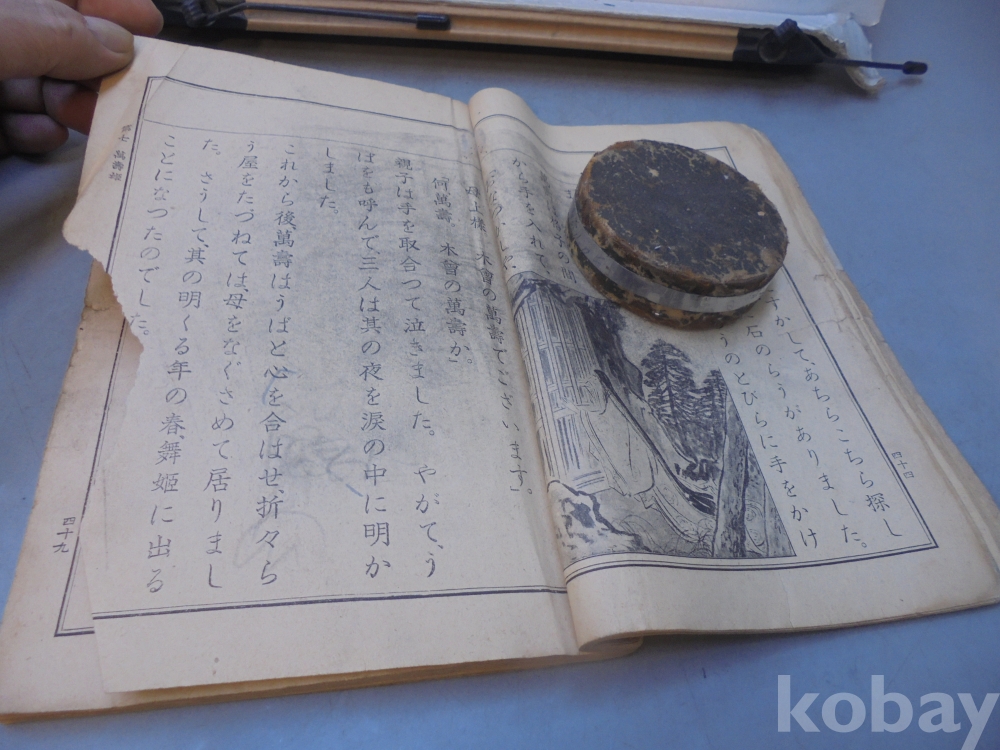 四十四
かして、あちらこちら探し
石のらうがありました。
うのとびらに手をかけ
子の間
から手を入れて、
母上様、木曾の萬壽でございます。」
「何、萬壽。木曾の萬壽か。」
親子は手を取合つて泣きました。やがて、う
ばをも呼んで、三人は其の夜を涙の中に明か
しました。
これから後、萬壽はうばと心を合はせ、折々ら
う屋をたづねては、母をなぐさめて居りまし
た。さうして、其の明くる年の春、舞姫に出る
ことになつたのでした。
第七 萬壽姫
四十九
kobay